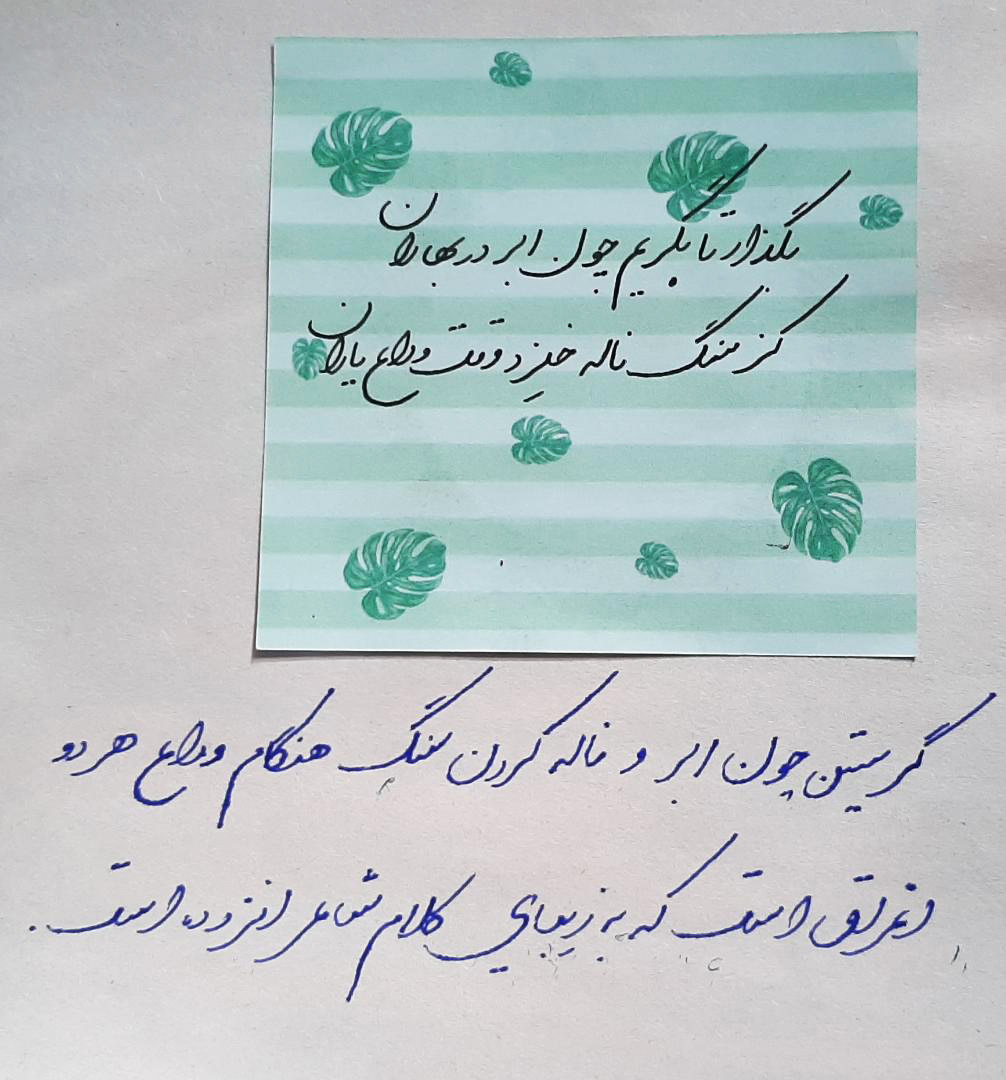 بگذار تا بگریم چون ابر در بهاران
کز سنگ ناله خیزد وقت وداع یاران
گریستن چون ابر و ناله کردن سنگ هنگام وداع هر دو
اغراق است که به زیبایی کلام شاعر افزوده است.